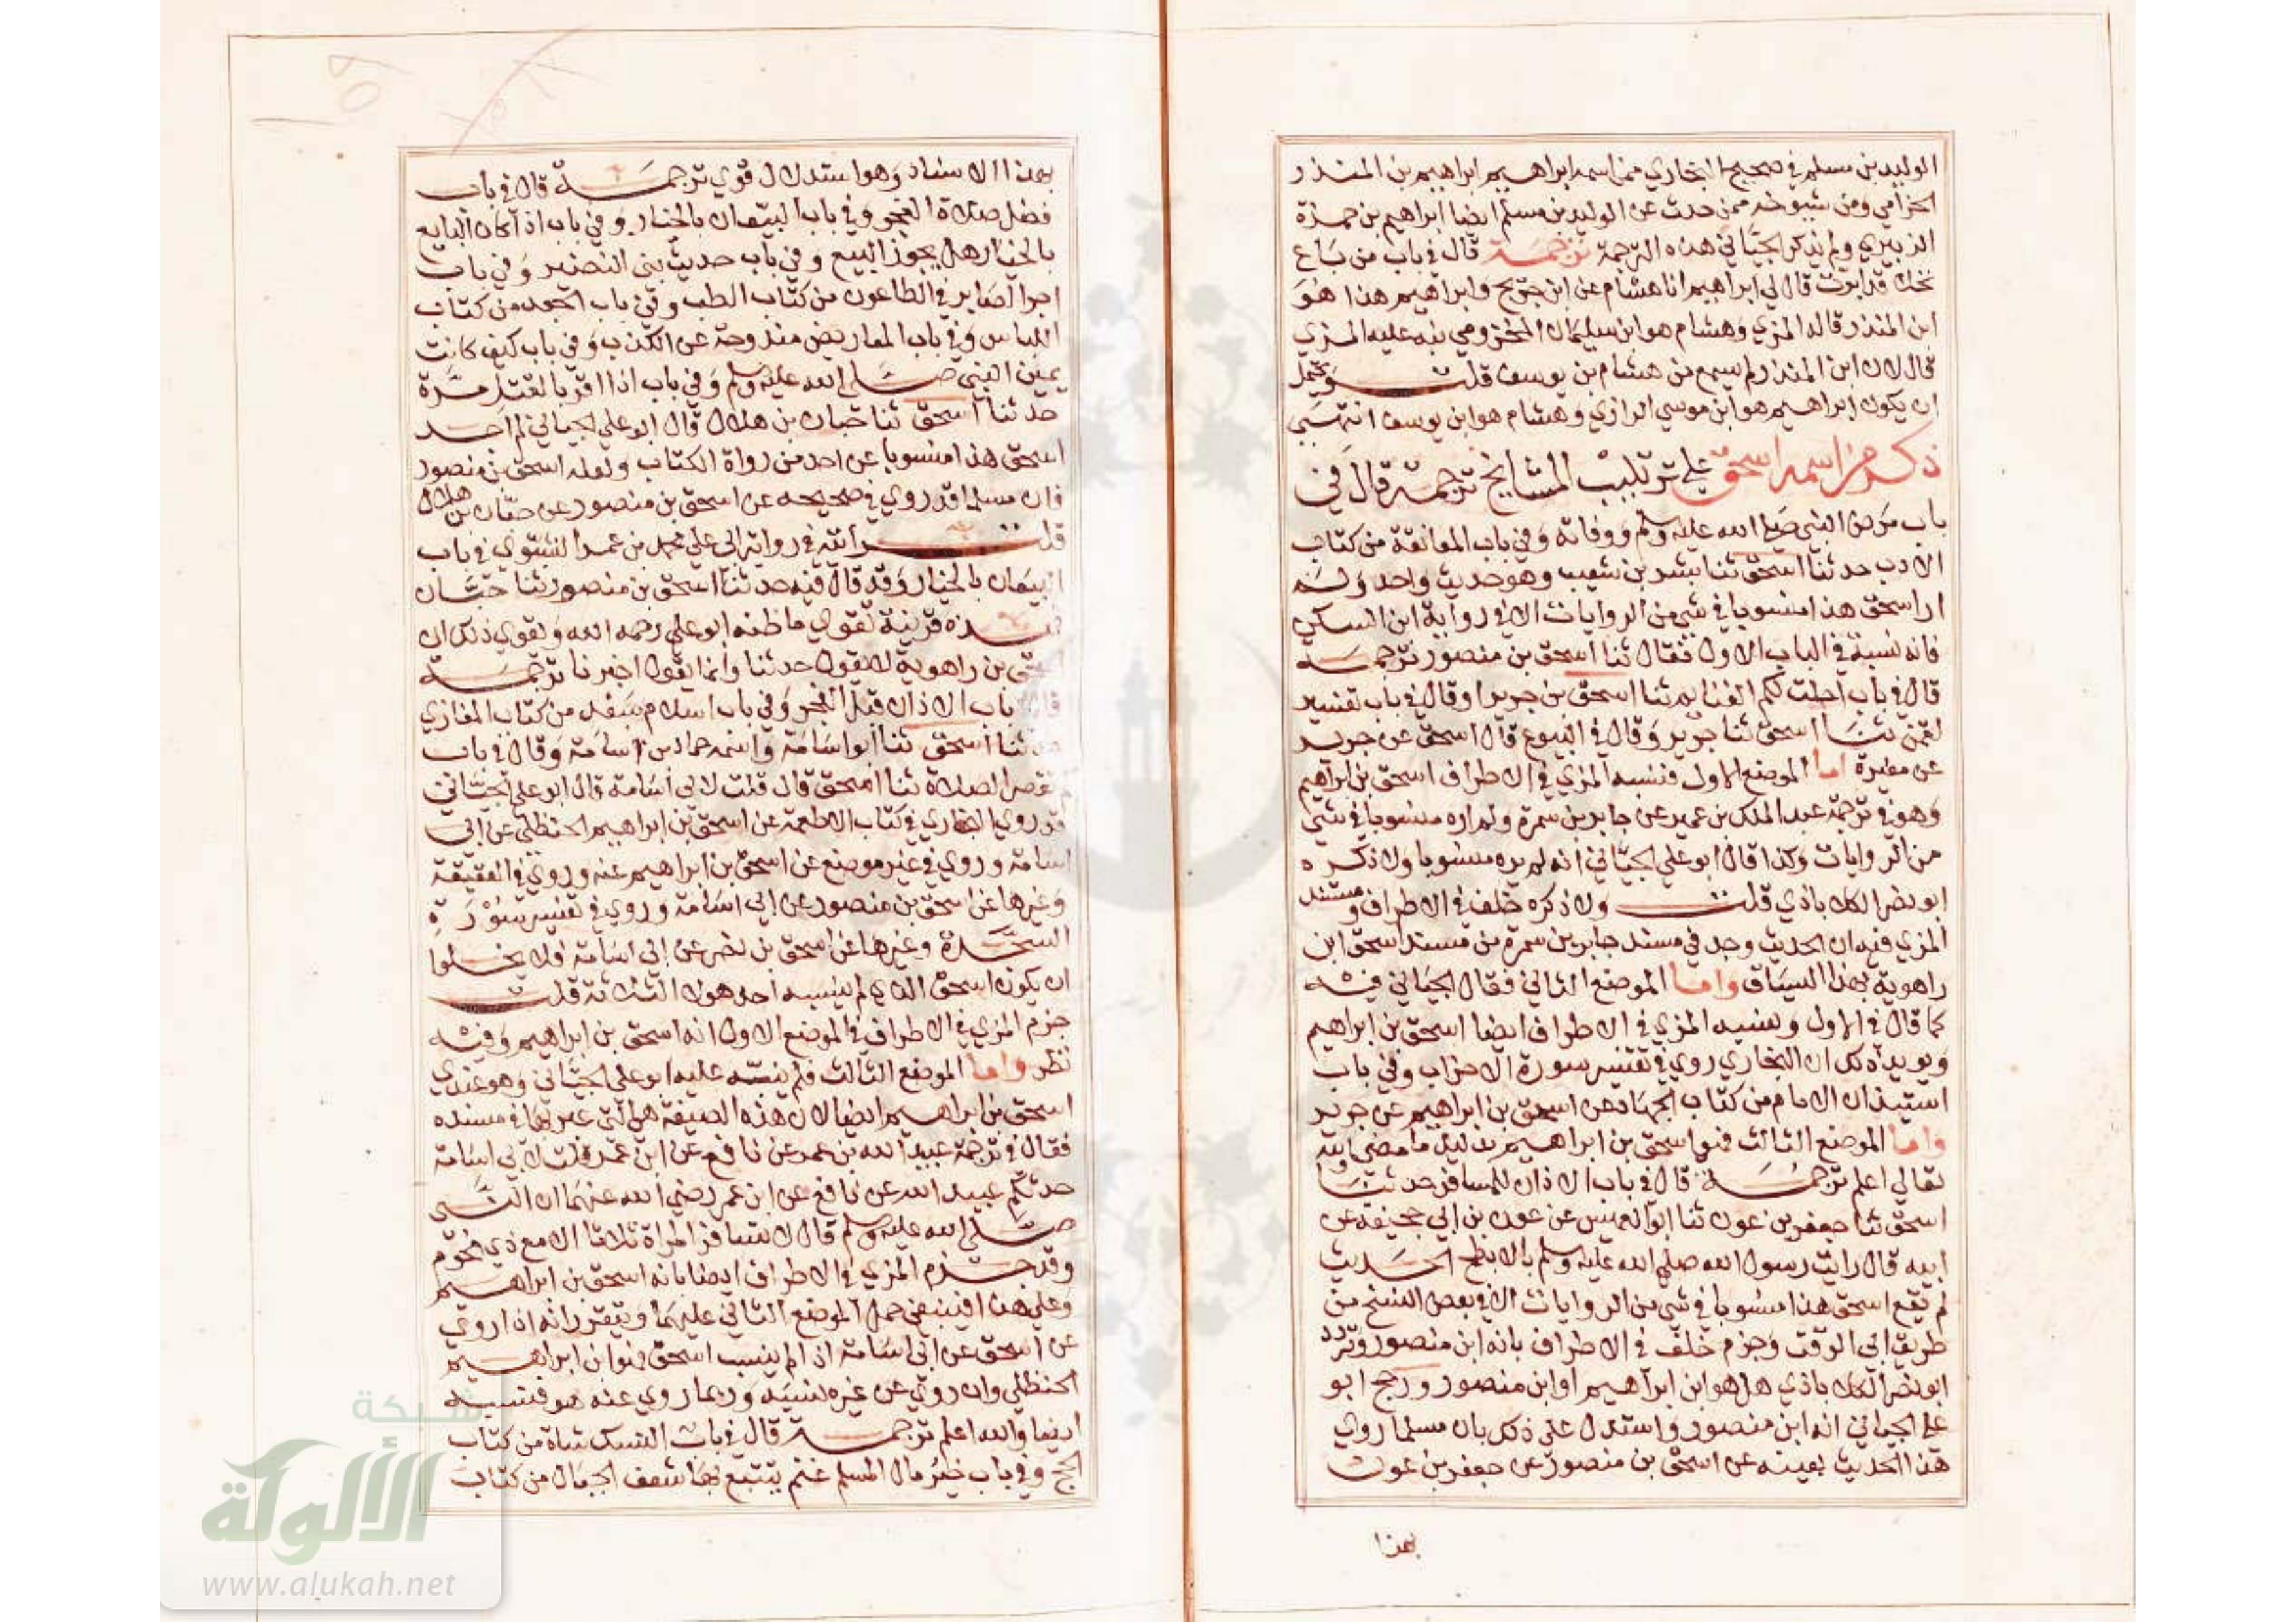 الوليد بن مسلم في صحيح البخاري ممن اسمه ابراهيم ابراهيم بن المنذر
الحزامي ومن شيوخه ممن حدث عن الوليد بن مسلم ايضا ابراهيم بن حمزة
الزبيري ولم يذكر الجياني هذه الترجمة ترجمة قال في باب من باع
نخلا قد ابرت قال لي ابراهيم انا هشام عن ابن جريج وابراهيم هذا هو
ابن المنذر قاله المزي وهشام هو ابن سليمان المخزومي نبه عليه المزي
قال لان ابن المنذر لم يسمع من هشام بن يوسف قلت ويحتمل
ان يكون ابراهيم هو ابن موسي الرازي وهشام هو ابن يوسف انتهي
ذكر من اسمه اسحق علي ترتيب المشايخ ترجمة قال في
باب مرض النبي صلي الله عليه وسلم ووفاته وفي باب المعانقة من كتاب
الادب حدثنا اسحق ثنا بشر بن شعيب وهو حديث واحد ولم
ار اسحق هذا منسوبا في شي من الروايات الا في رواية ابن السكن
فانه نسبه في الباب الاول فقال ثنا اسحق بن منصور ترجمة
قال في باب احلت لكم الغنايم ثنا اسحق بن جريرا وقال في باب تفسير
لقمن ثنا اسحق ثنا جرير وقال في البيوع قال اسحق عن جرير
عن مغيرة اما الموضع الاول فنسبه المزي في الاطراف اسحق بن ابراهيم
وهو في ترجمة عبد الملك بن عمير عن جابر بن سمرة ولم اره منسوبا في شي
من الروايات وكذا قال ابو علي الجياني انه لم يره منسوبا ولا ذكره
ابو نصر الكلاباذي قلت ولا ذكره خلف في الاطراف ومستند
المزي فيه ان الحديث وجد في مسند جابر بن سمرة من مسند اسحق ابن
راهوية بهذا السياق واما الموضع الثاني فقال الجياني فيه
كما قال في الاول ونسبه المزي في الاطراف ايضا اسحق بن ابراهيم
ويويد ذلك ان البخاري روي في تفسير سورة الاحزاب وفي باب
استيذان الامام من كتاب الجهاد عن اسحق بن ابراهيم عن جرير
واما الموضع الثالث فهو اسحق بن ابراهيم بدليل ما مضي والله
تعالي اعلم ترجمة قال في باب الاذان للمسافر حدثنا
اسحق ثنا جعفر بن عون ثنا ابو العميس عن عون بن ابي جحيفة عن
ابيه قال رايت رسول الله صلي الله عليه وسلم بالابطح الحديث
لم يقع اسحق هذا منسوبا في شي من الروايات الا في بعض النسخ من
طريق ابي الوقت وجزم خلف في الاطراف بانه ابن منصور وتردد
ابو نصر الكلاباذي هل هو ابن ابراهيم او ابن منصور ورجح ابو
علي الجياني انه ابن منصور واستدل علي ذلك بان مسلما روي
هذا الحديث بعينه عن اسحق بن منصور عن جعفر بن عون
بهذا
بهذا الاسناد وهو استدلال قوي ترجمة قال في باب
فضل صلاة الفجر وفي باب البيعان بالخيار وفي باب اذا كان البايع
بالخيار هل يجوز البيع وفي باب حديث بني النضير وفي باب
اجر الصابر في الطاعون من كتاب الطب وفي باب الجعد من كتاب
اللباس وفي باب المعاريض مندوحة عن الكذب وفي باب كيف كانت
يمين النبي صلي الله عليه وسلم وفي باب اذا اقر بالقتل مرة
حدثنا اسحق ثنا حبان بن هلال قال ابو علي الجياني لم اجد
اسحق هذا منسوبا عن احد من رواة الكتاب ولعله اسحق بن منصور
فان مسلما قد روي في صحيحه عن اسحق بن منصور عن حبان بن هلال
قلت رأيته في رواية ابي علي محمد بن عمر الشبوي في باب
البيعان بالخيار وقد قال فيه حدثنا اسحق بن منصور ثنا حبان
فهذه قرينة تقوي ما ظنه ابو علي رحمه الله وتقوي ذلك ان
اسحق بن راهوية لا يقول حدثنا وانما يقول اخبرنا ترجمة
قال باب الاذان قبل الفجر وفي باب اسلام سعد من كتاب المغازي
حدثنا اسحق ثنا ابو اسامة واسمه حماد بن اسامة وقال في باب
كم تقصر الصلاة ثنا اسحق قال قلت لابي اسامة قال ابو علي الجياني
قد روي البخاري في كتاب الاطعمة عن اسحق بن ابراهيم الحنظلي عن ابي
اسامة وروي في غير موضع عن اسحق بن ابراهيم عنه وروي في العقيقة
وغيرها عن اسحق بن منصور عن ابي اسامة وروي في تفسير سورة
السجدة وغيرها عن اسحق بن نصر عن ابي اسامة فلا يخلوا
ان يكون اسحق الذي لم ينسبه احد هولا الثلاثة قلت
جزم المزي في الاطراف في الموضع الاول انه اسحق بن ابراهيم وفيه
نظر واما الموضع الثالث فلم ينبه عليه ابو علي الجياني وهو عندي
اسحق بن ابراهيم ايضا لان هذه الصيغة هي التي عبر بها في مسنده
فقال في ترجمة عبيد الله بن عمر عن نافع عن ابن عمر قلت لابي اسامة
حدثكم عبيد الله عن نافع عن ابن عمر رضي الله عنهما ان النبي
صلي الله عليه وسلم قال لا تسافر امراة ثلاثا الا مع ذي محرم
وقد جزم المزي في الاطراف ايضا بانه اسحق بن ابراهيم
وعلي هذا فينبغي حمل الموضع الثاني عليهما ويتقرر انه اذا روي
عن اسحق عن ابي اسامة اذا لم ينسب اسحق فهو ابن ابراهيم
الحنظلي وان روي عن غيره نسبه وربما روي عنه هو فنسبه
ايضا والله اعلم ترجمة قال في باب النسك شاة من كتاب
الحج وفي باب خير مال المسلم غنم يتتبع بها شعف الجبال من كتاب
شبكة
الألوكة
www.alukah.net